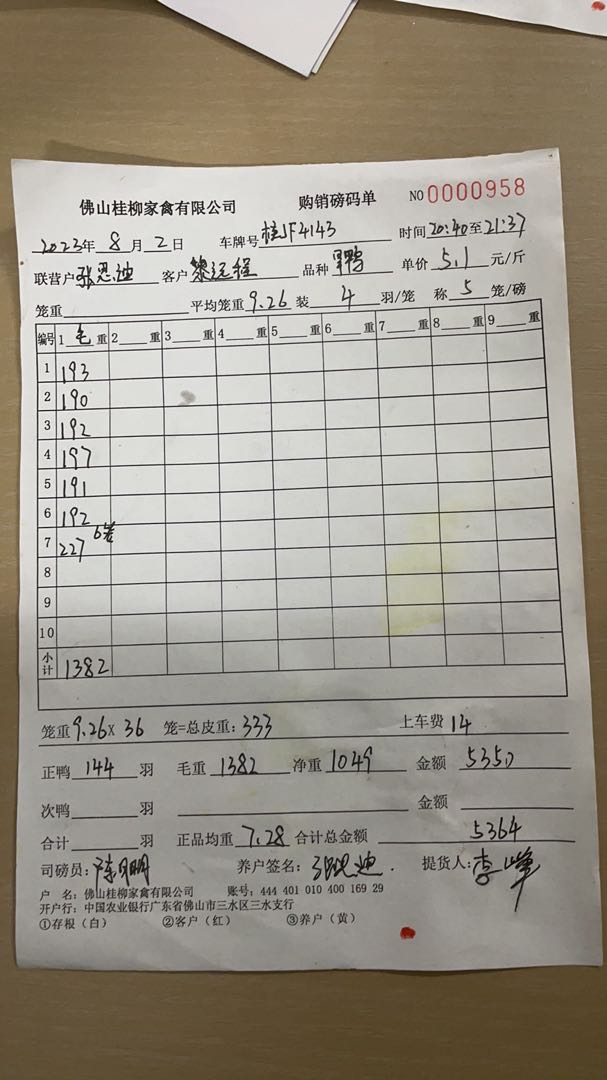 佛山桂柳家禽有限公司 购销磅码单 NO 0000958
2023年 8 月 2 日 车牌号 桂JF4143 时间 20:40 至 21:37
联营户 张恩迪 客户 黎远程 品种 鸭 单价 5.1 元/斤
笼重 平均笼重 9.26 装 4 羽/笼 称 5 笼/磅
编号 1 毛 重 2 重 3 重 4 重 5 重 6 重 7 重 8 重 9 重
1 193
2 190
3 192
4 197
5 191
6 192
7 227 6笼
8
9
10
小计 1382
笼重 9.26 X 36 笼=总皮重: 333 上车费 14
正鸭 144 羽 毛重 1382 净重 1049 金额 5350
次鸭 羽 金额
合计 羽 正品均重 7.28 合计总金额 5364
司磅员: 养户签名: 提货人:
户 名: 佛山桂柳家禽有限公司 账号: 444 401 010 400 169 29
开户行: 中国农业银行广东省佛山市三水区三水支行
①存根（白） ②客户（红） ③养户（黄）